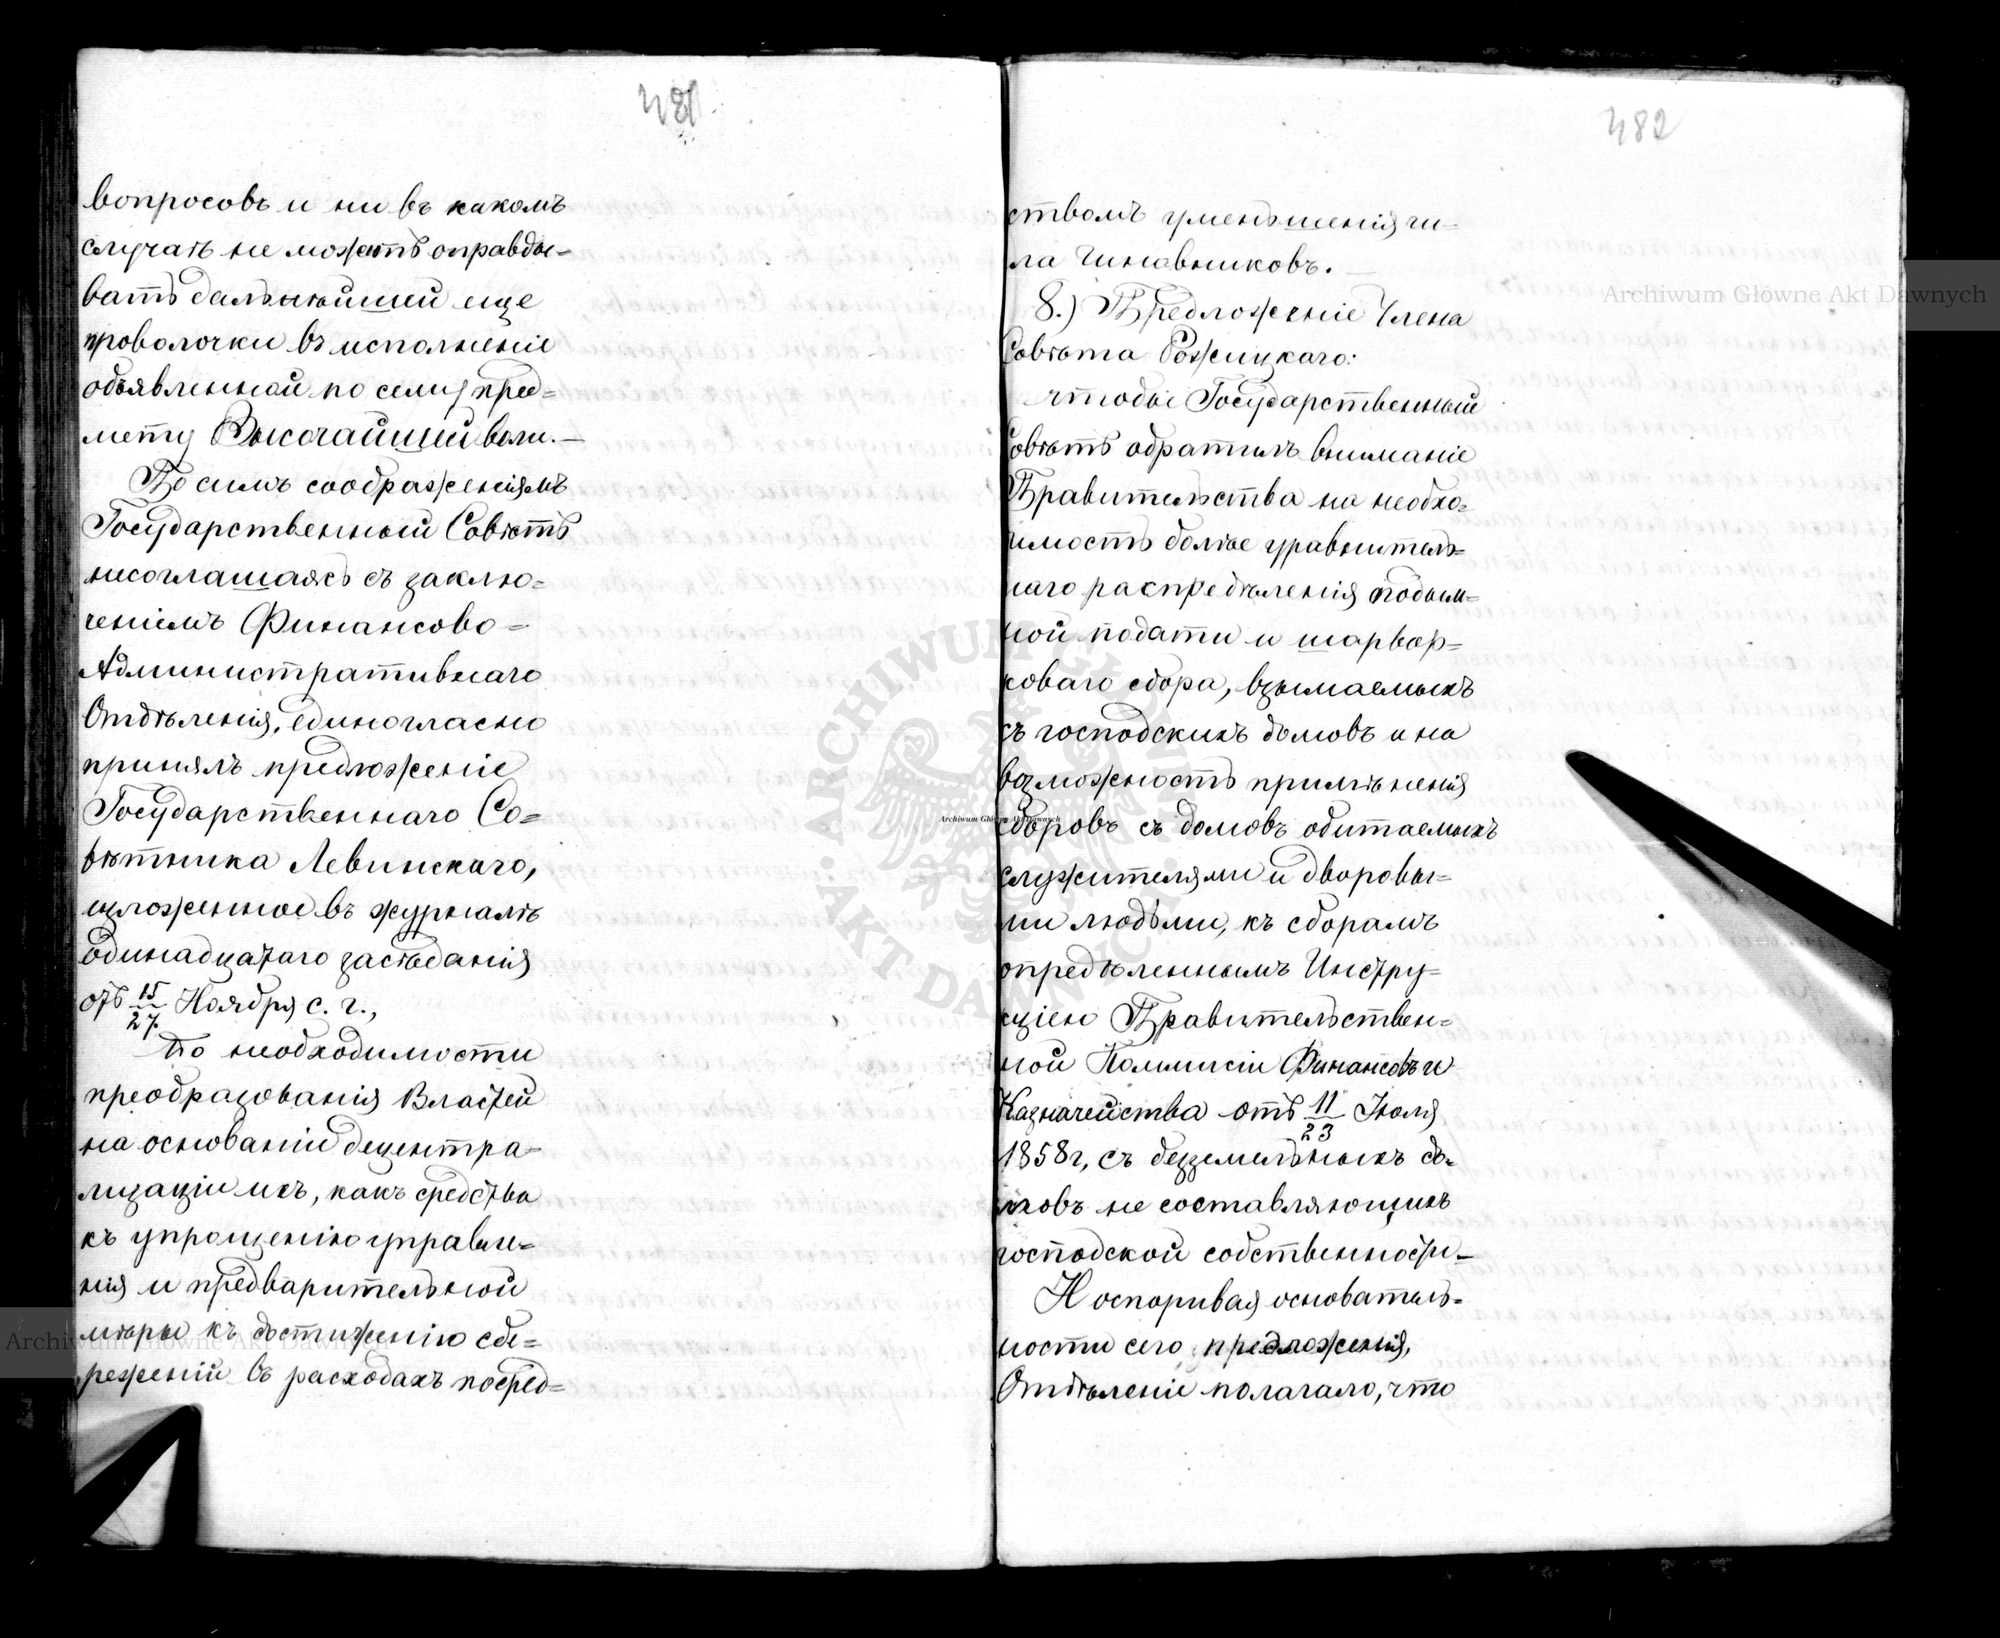 481
вопросовъ и ни въ какомъ
случаѣ не можетъ оправды=
вать дальнѣйшей еще
проволочки въ исполненіе
объявленной по сему пред=
мету Высочайшей воли.—
По симъ соображеніямъ
Государственный Совѣтъ
несоглашаясь съ заклю=
ченіемъ Финансово=
Административнаго
Отдѣленія, единогласно
принялъ предложеніе
Государственнаго Со=
вѣтника Левинскаго,
изложенное въ журналѣ
одинадцатаго засѣданія
отъ 15/27 Ноября с. г.,
По необходимости
преобразованія Властей
на основаніи децентра=
лизаціи ихъ, какъ средства
къ упрощенію управле=
нія и предварительной
мѣры къ достиженію сбе=
реженій въ расходахъ посред=
482
ствомъ уменьшенія чи=
ла Чиновниковъ.—
8.) Предложеніе Члена
Совѣта Рожицкаго:
чтобы Государственный
Совѣтъ обратилъ вниманіе
Правительства на необхо=
имость болѣе уравнитель=
наго распредѣленія подым=
ной подати и шарвар=
коваго сбора, взымаемыхъ
съ господскихъ домовъ и на
возможность примѣненія
сборовъ съ домовъ обитаемыхъ
служителями и дворовы=
ми людьми, къ сборамъ
опредѣленнымъ Инстру=
кціею Правительствен=
ной Коммисіи Финансовъ и
Казначейства отъ 11/23 Іюля
1858г, съ безземельныхъ до=
мовъ не составляющихъ
господской собственности—
Н оспоривая основатель=
ности сего предложенія,
Отдѣленіе полагало, что
Archiwum Główne Akt Dawnych
Archiwum Główne Akt Dawnych
Archiwum Główne Akt Dawnych
ARCHIWUM GŁÓWNE AKT DAWNYCH